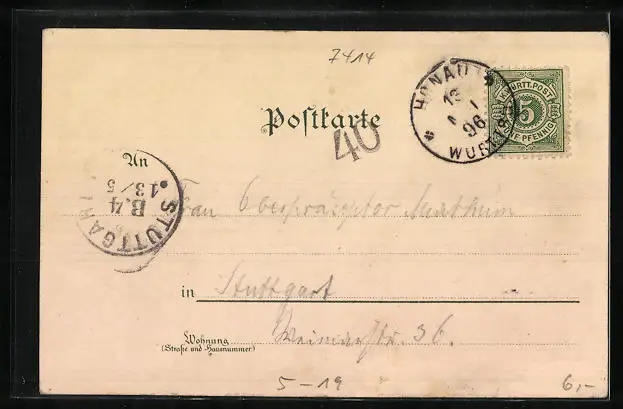 7414
HONAU
13
MAI
96
WÜRTTBG
K. WÜRTT. POST
5
FÜNF PFENNIG
Postkarte
40
An
STUTTGART
B.4
13/5
Frau Oberpräzeptor
in Stuttgart
Wohnung Weimarstr. 36.
(Straße und Hausnummer)
5-19
6,-